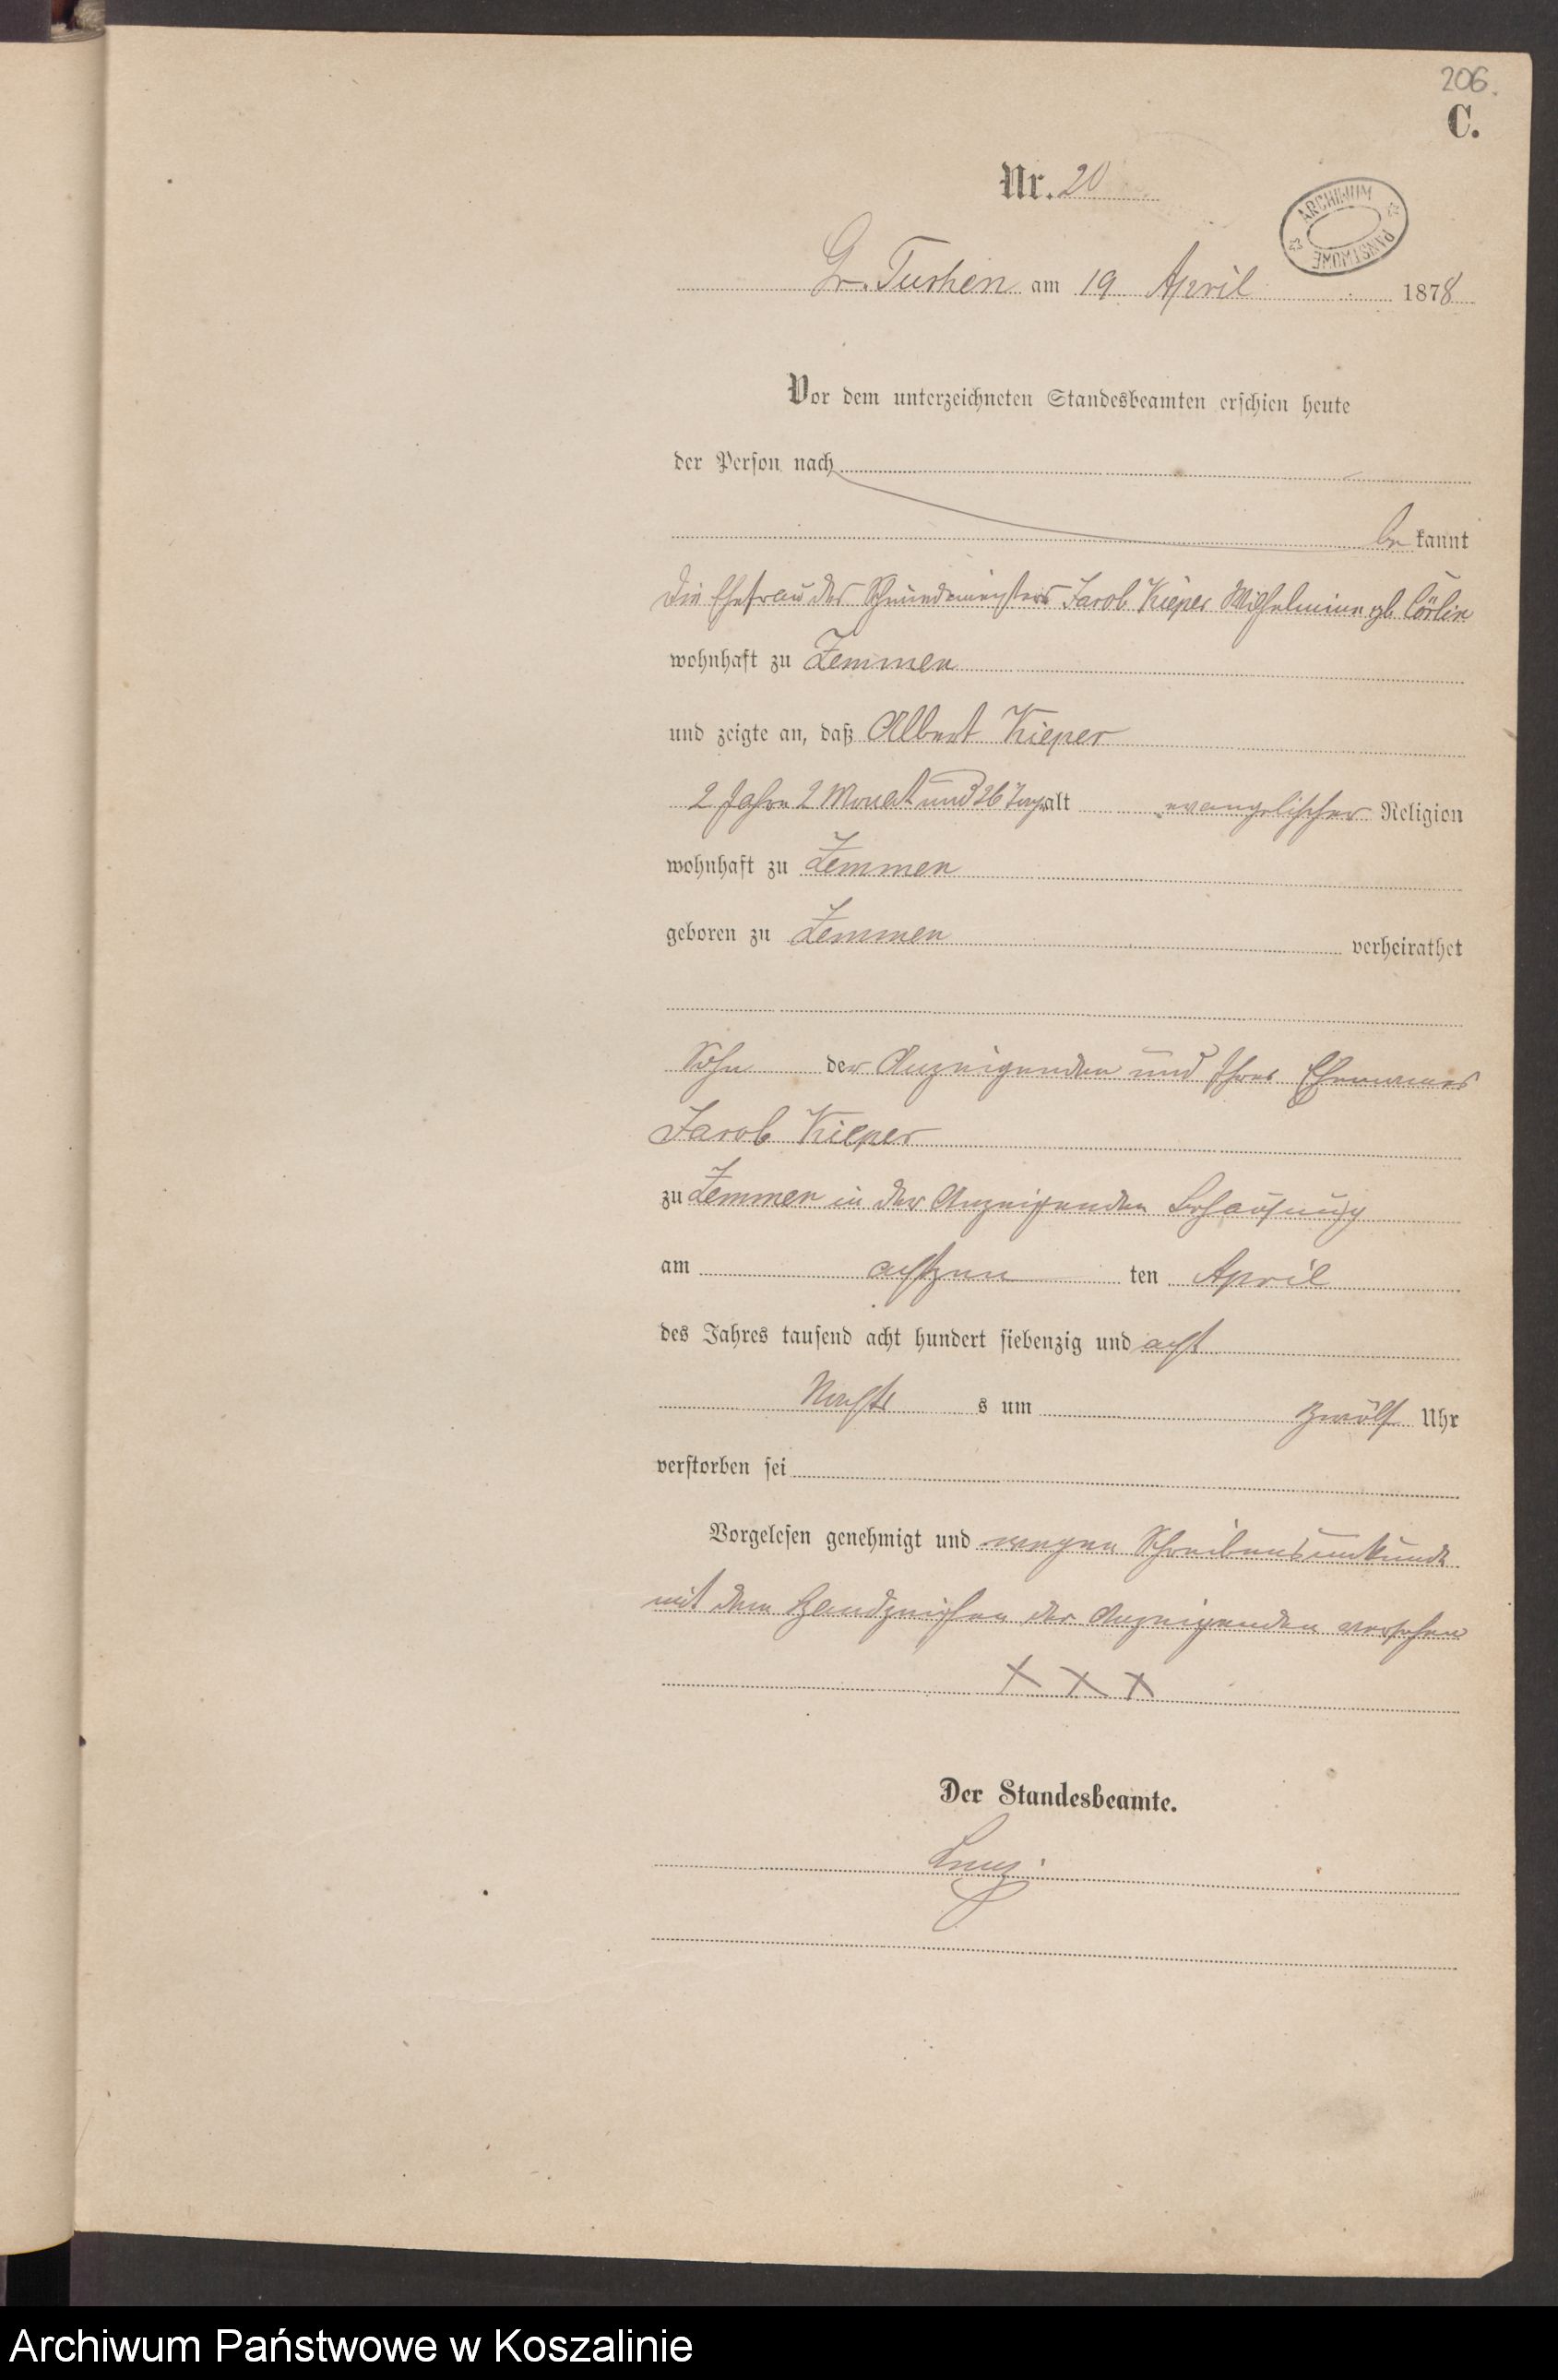 206.
C.
Nr. 20
ARCHIWUM PAŃSTWOWE
Gr. Tuchen am 19 April 1878
Vor dem unterzeichneten Standesbeamten erschien heute
der Person nach
be kannt
die Ehefrau des Jacob Kieper Wilhelmine gb Cörlin
wohnhaft zu Zemmen
und zeigte an, daß Albert Kieper
2 Jahre 2 Monat und 26 Tage alt evangelischer Religion
wohnhaft zu Zemmen
geboren zu Zemmen verheirathet
Sohn der Anzeigenden und Ihres Ehemannes
Jacob Kieper
zu Zemmen in der Anzeigenden Behausung
am achtzehn ten April
des Jahres tausend acht hundert siebenzig und acht
Nachts um zwölf Uhr
verstorben sei
Vorgelesen genehmigt und wegen Schreibensunkunde
mit dem Handzeichen der Anzeigenden versehen
X X X
Der Standesbeamte.
Archiwum Państwowe w Koszalinie